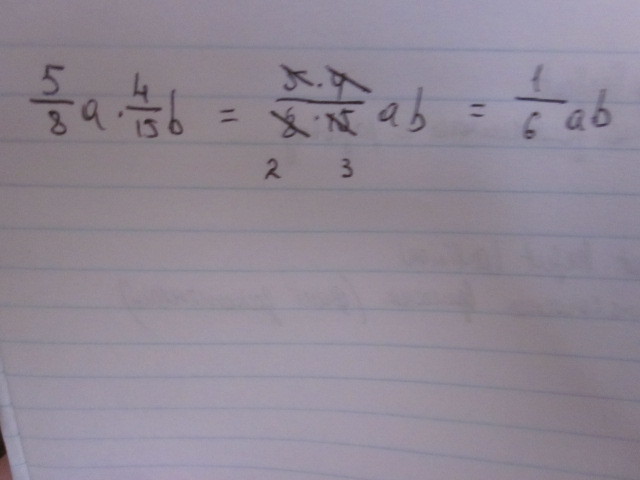 5/8 a · 4/15 b = 5·4/8·15 ab = 1/6 ab
2 3